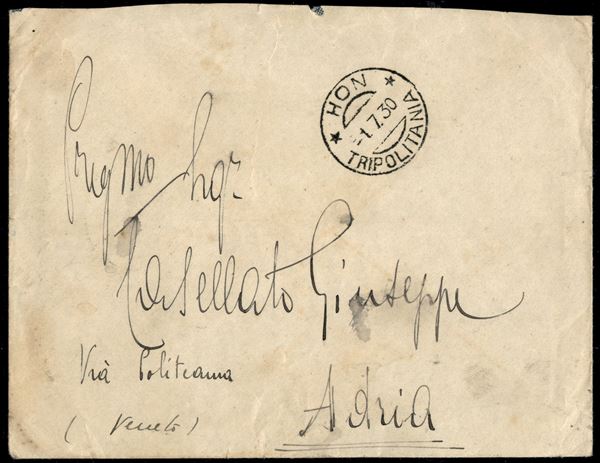 HON
-1.7.30
TRIPOLITANIA
Pregmo Sigr
Casellato Giuseppe
Via Politeama
Adria
(Veneto)